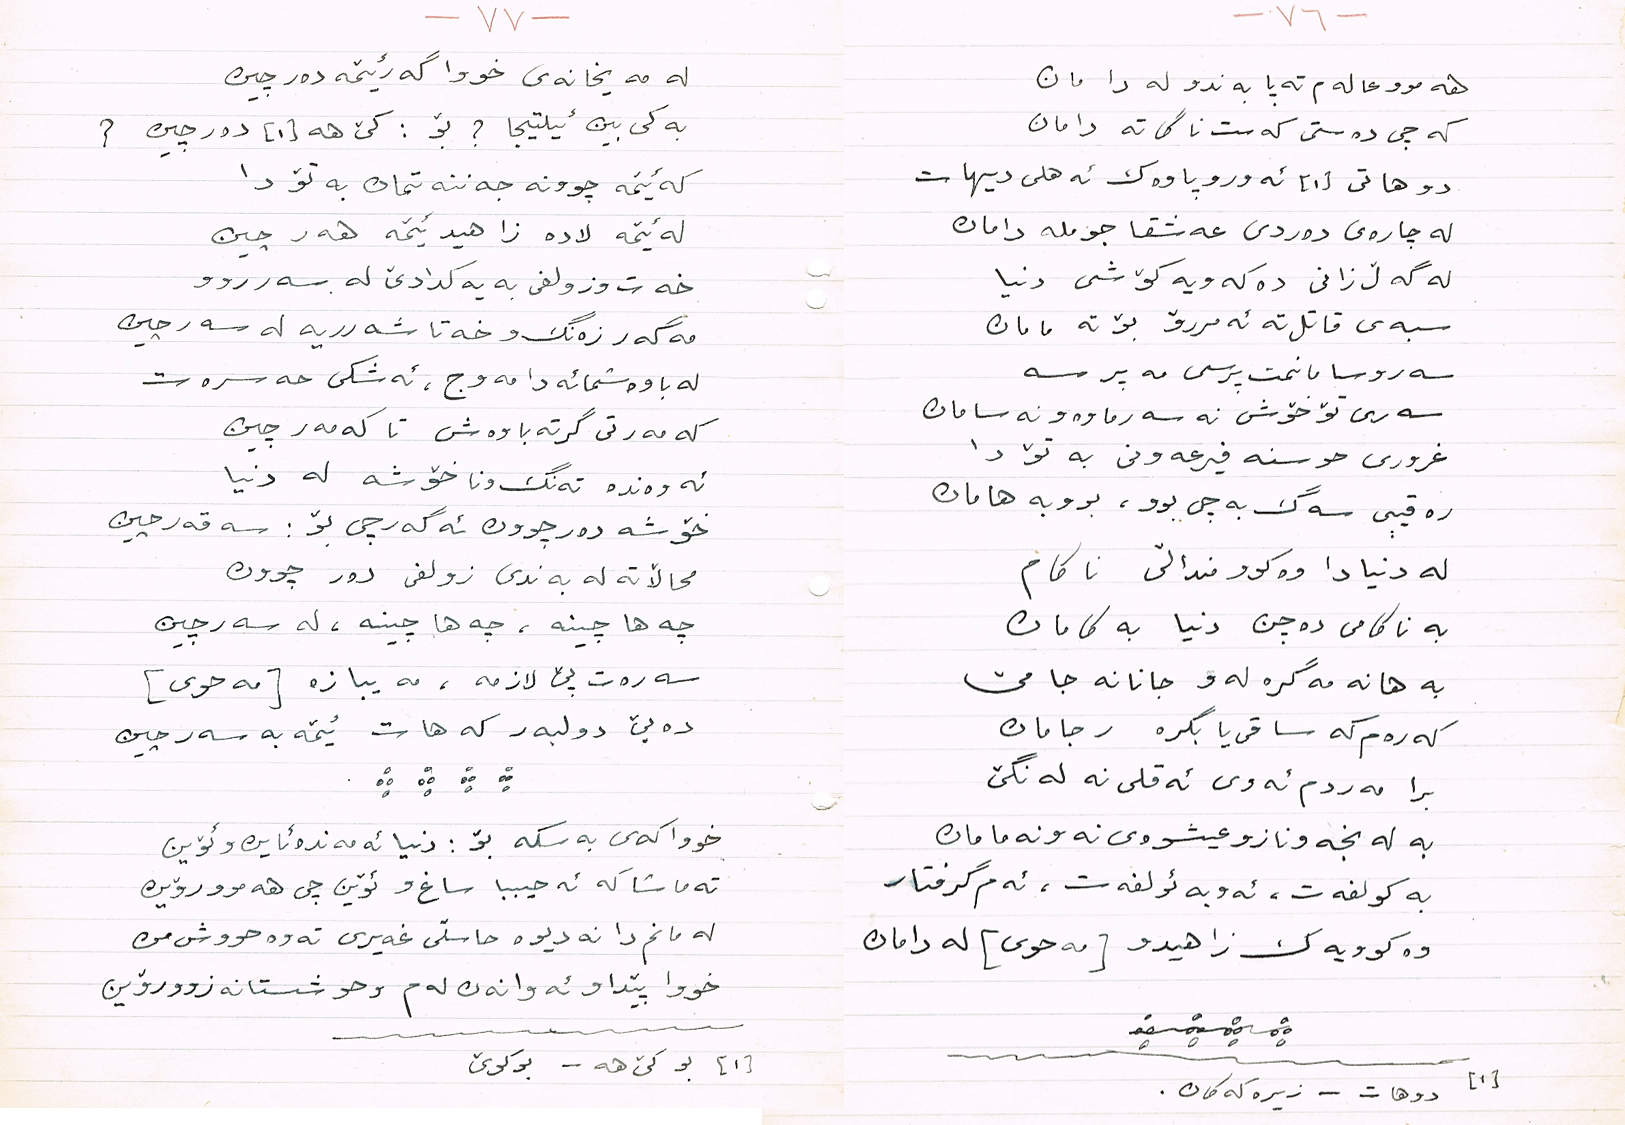 — ٧٦ —
هەموو عالەم تەپا بەندو لە دا مان
کە چی دەستی کەست ناگاتە دامان
دوهاتی [١] ئەوروپاوەک ئەهلی دیهات
لە چارەی دەردی عەشقا جوملە دامان
لەگەڵ زانی دەکەویە کۆششی دنیا
سبەی قاتلتە ئەمررۆ بۆتە مامان
سەروسامانمت پرسی مەپرسە
سەری تۆخۆش نەسەرماوەونەسامان
غروری حوسنە فیرعەونی بەتۆ دا
رەقیبی سەگ بەچی بوو، بووبە هامان
لە دنیادا وەکوو منداڵی ناکام
بە ناکامی دەچن دنیا بە کامان
بەهانە مەگرە لەو جانانە جامێ
کەرەم کە ساقی یا بگرە رجامان
برا مەردم ئەوی ئەقلی نەلەنگێ
بە لەنجەونازوعیشوەی نەونەمامان
بە کولفەت، ئەوبەئولفەت، ئەم گرفتار
وەکوویەک زاهیدو [مەحوی] لەدامان
[١] دوهات – زیرەکەکان.
— ٧٧ —
لە مەیخانەی خووا گەرئێمە دەرچین
بەکێ بین ئیلتیجا؟ بۆ: کێ هە [١] دەرچین ؟
کەئێمە چوونە جەننەتمان بەتۆ دا
لەئێمە لادە زاهید ئێمە هەر چین
خەت وزولفی بەیەکدادێ لە سەرروو
مەگەر زەنگ و خەتا شەرریە لە سەرچین
لە باوەشمائەدا مەوج، ئەشکی حەسرەت
کەمەرتی گرتە باوەش تا کەمەرچین
ئەوەندە تەنگ وناخۆشە لە دنیا
خۆشە دەرچوون ئەگەرچی بۆ: سەقەرچین
محاڵاتە لە بەندی زولفی دەر چوون
چەها چینە، چەها چینە، لە سەرچین
سەرەت پێ لازمە، مەیبازە [مەحوی]
دەبێ دولبەر کەهات ئێمە بەسەرچین
خووا کەی بەسکە بۆ: دنیا ئەمەندەئاین وئۆین
تەماشاکە ئەحیببا ساغ و ئۆین چی هەموورۆین
لە مانم دا نەدیوە حاسڵی غەیری تەوەحووش من
خووا پێیداو ئەوانەن لەم وحوشستانەزوورۆین
[١] بو کێ هە – بوکوێ